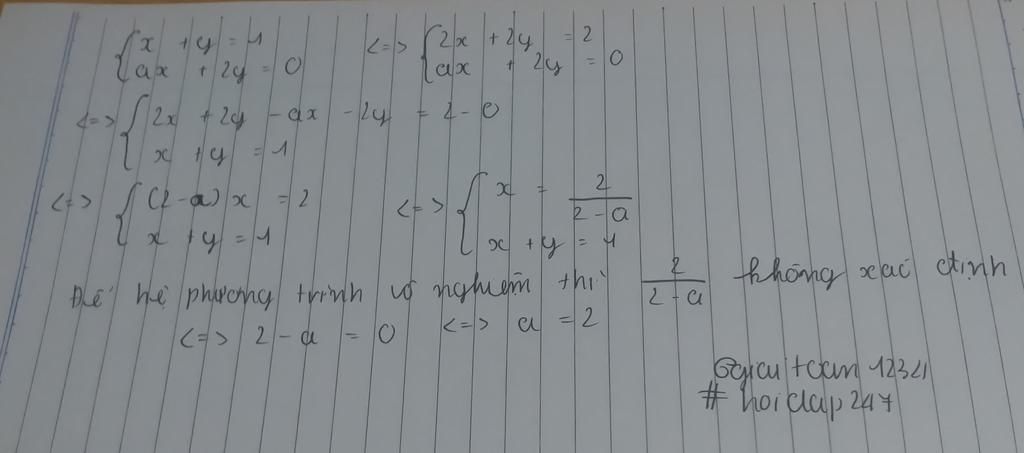 { x + y = 1 <=> { 2x + 2y = 2
ax + 2y = 0 ax + 2y = 0
<=> { 2x + 2y - ax - 2y = 2 - 0
x + y = 1
<=> { (2 - a) x = 2 <=> { x = 2/(2 - a)
x + y = 1 x + y = 1
Để hệ phương trình vô nghiệm thì 2/(2 - a) không xác định
<=> 2 - a = 0 <=> a = 2
@giaitoan1234
# hoidap247